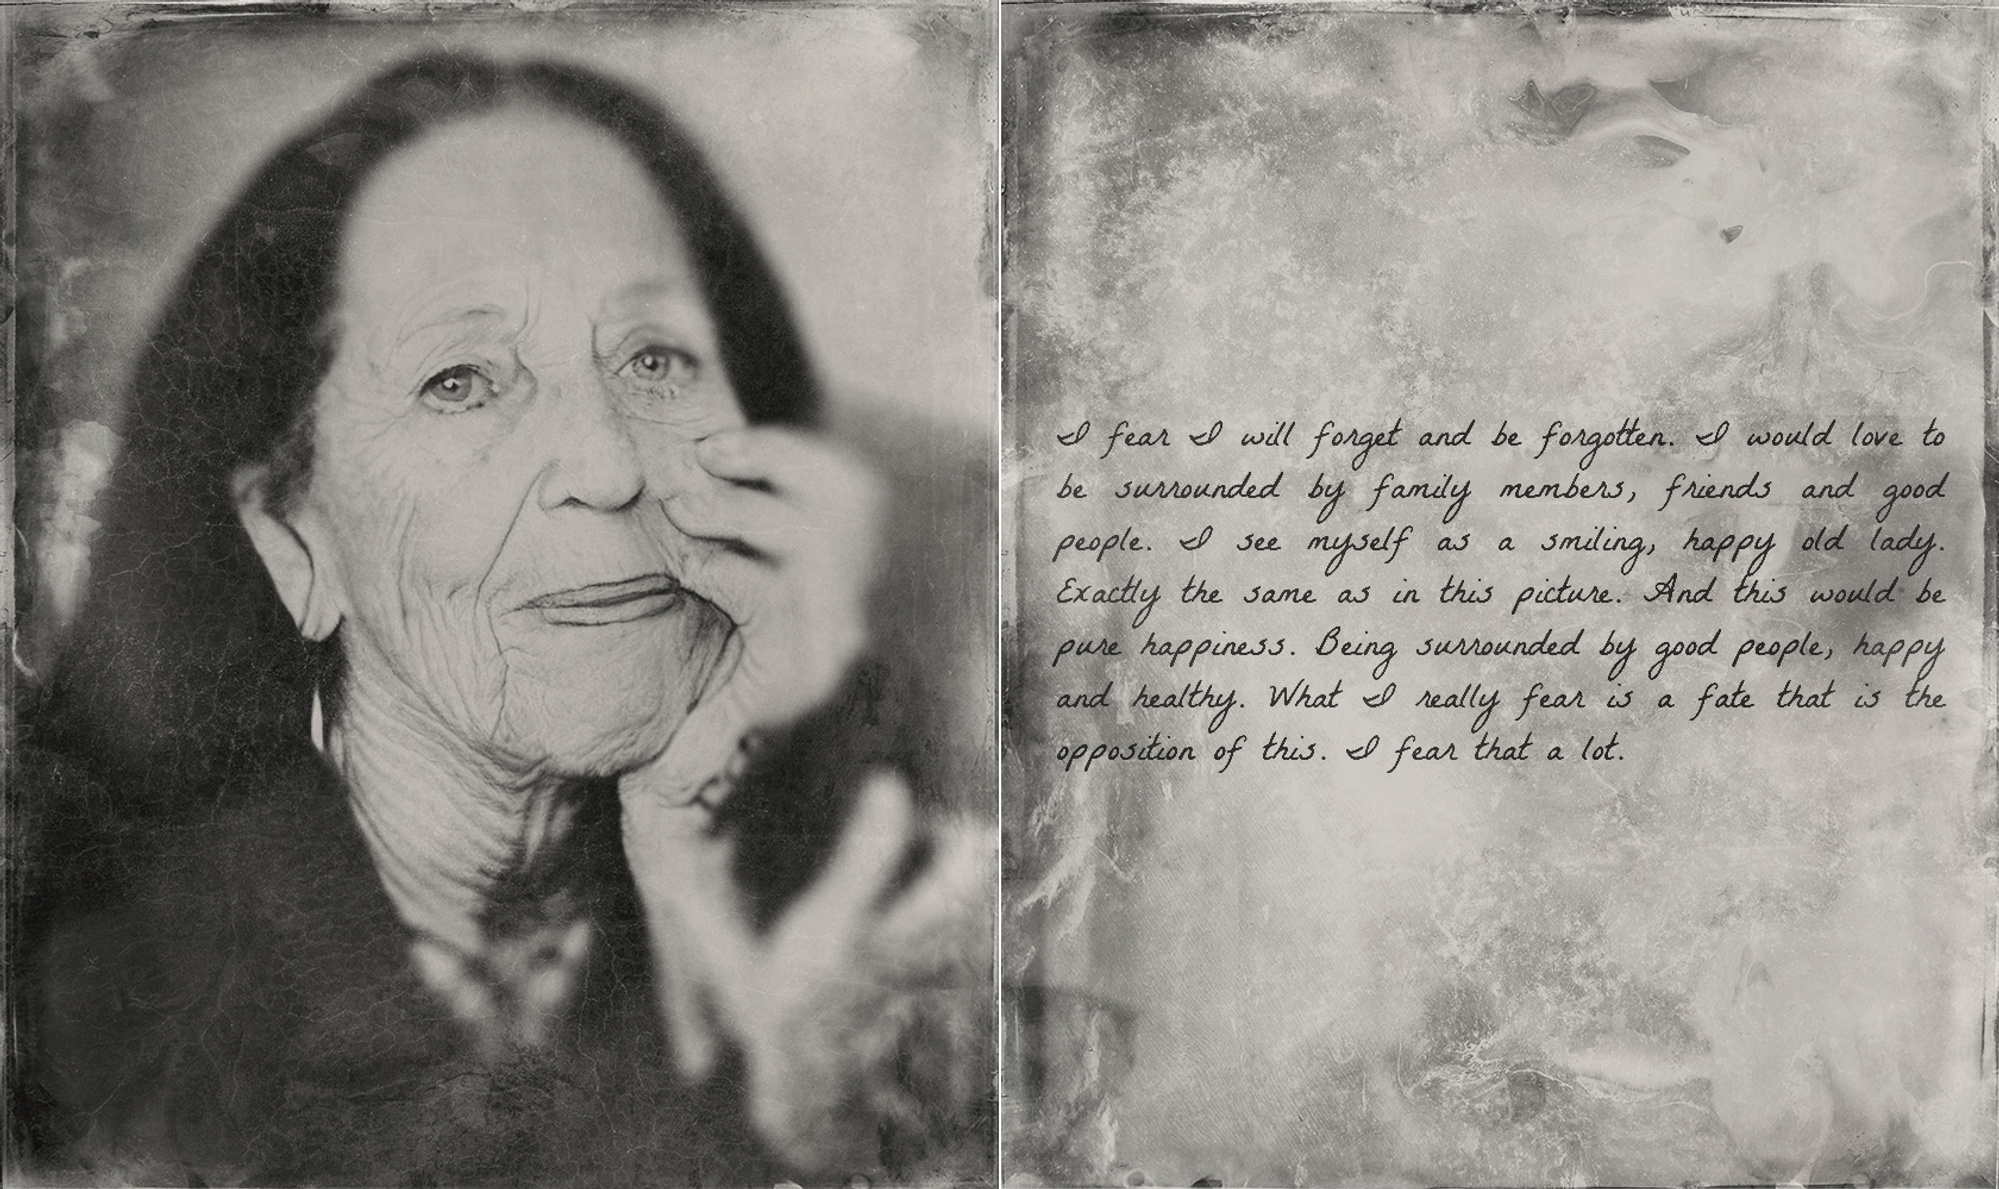 I fear I will forget and be forgotten. I would love to
be surrounded by family members, friends and good
people. I see myself as a smiling, happy old lady.
Exactly the same as in this picture. And this would be
pure happiness. Being surrounded by good people, happy
and healthy. What I really fear is a fate that is the
opposition of this. I fear that a lot.